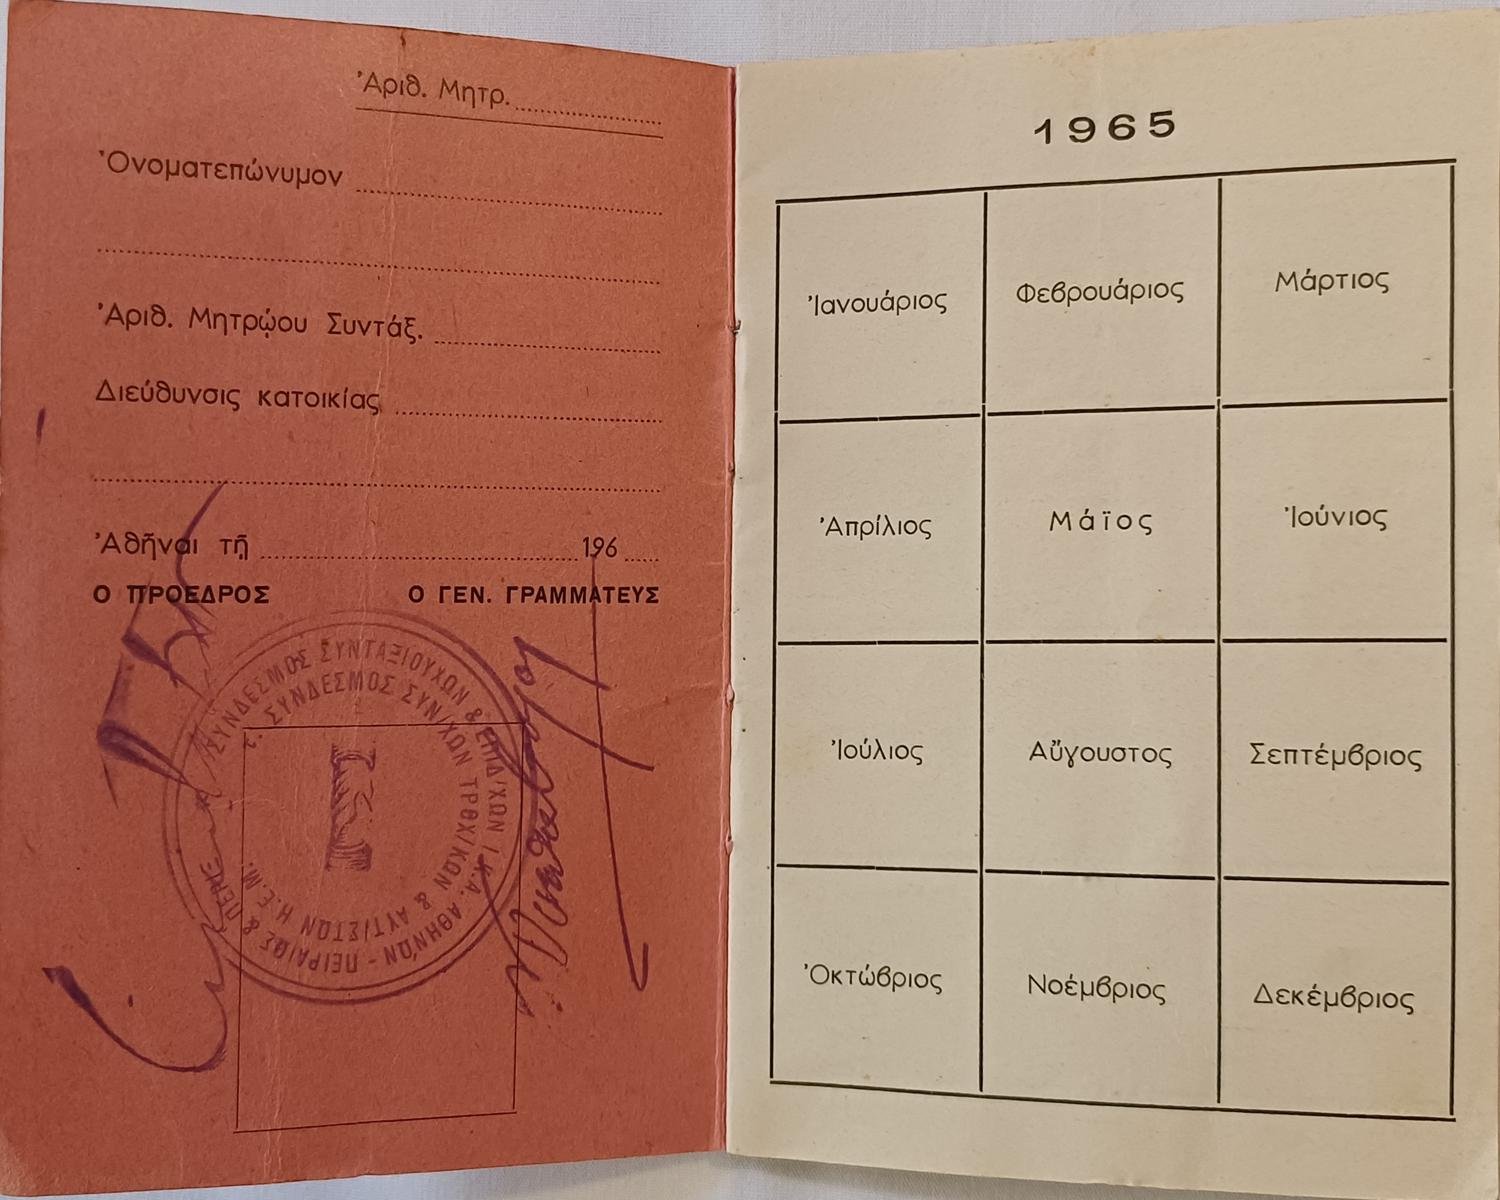 Ἀριθ. Μητρ.
Ὀνοματεπώνυμον
Ἀριθ. Μητρῴου Συντάξ.
Διεύθυνσις κατοικίας
Ἀθῆναι τῇ 196
Ο ΠΡΟΕΔΡΟΣ Ο ΓΕΝ. ΓΡΑΜΜΑΤΕΥΣ
ΣΥΝΔΕΣΜΟΣ ΣΥΝΤΑΞΙΟΥΧΩΝ & ΕΠΙΔ/ΧΩΝ Ι.Κ.Α. ΑΘΗΝΩΝ - ΠΕΙΡΑΙΩΣ &
ΣΥΝΔΕΣΜΟΣ ΣΥΝ/ΧΩΝ ΤΡΟΧ/ΚΩΝ & ΑΥΤ/ΣΤΩΝ Η.Ε.Μ.
1965
Ἰανουάριος Φεβρουάριος Μάρτιος
Ἀπρίλιος Μάϊος Ἰούνιος
Ἰούλιος Αὔγουστος Σεπτέμβριος
Ὀκτώβριος Νοέμβριος Δεκέμβριος